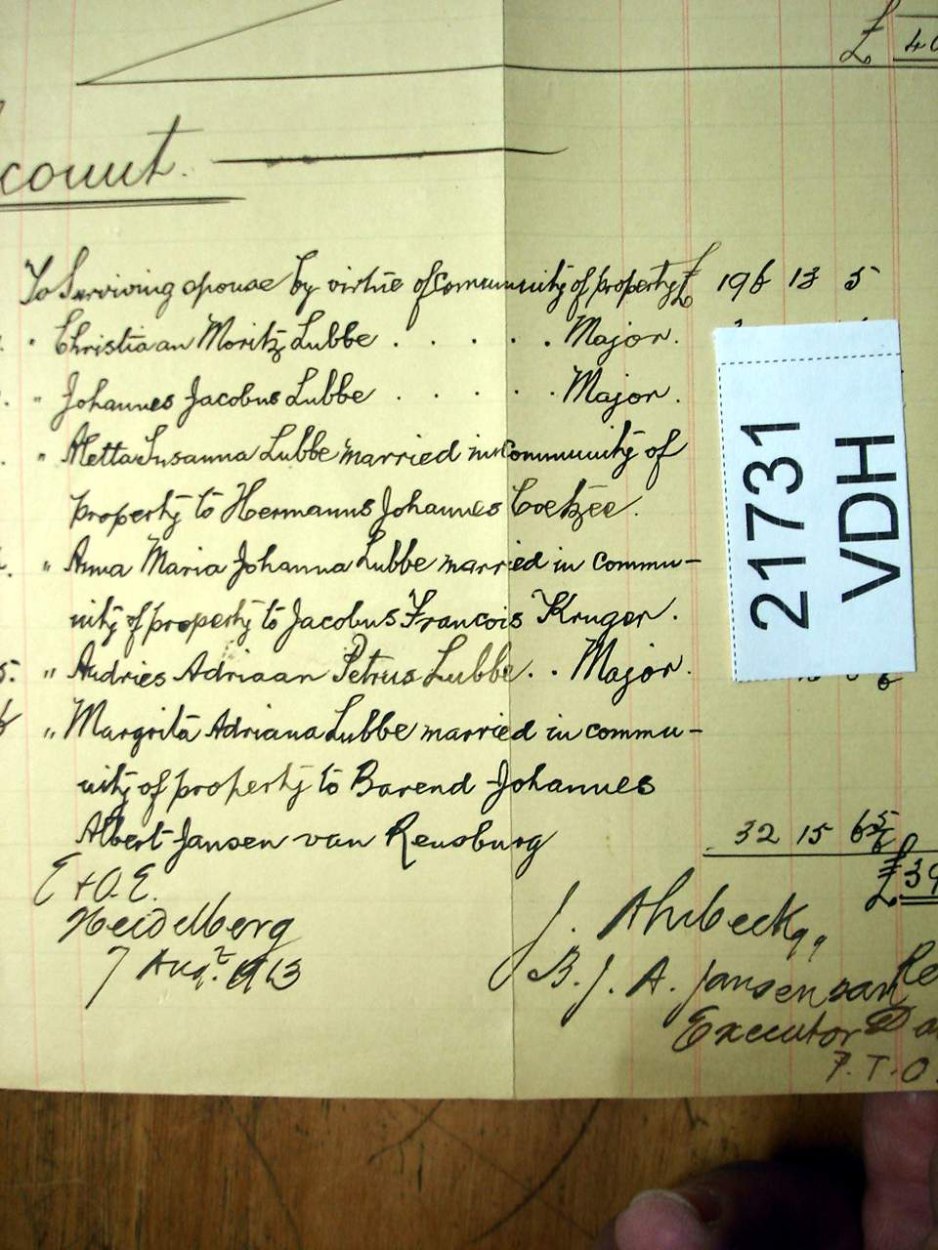 £ 40
count.
To Surviving spouse by virtue of community of property £ 196 13 5
" Christiaan Moritz Lubbe . . . . . Major.
" Johannes Jacobus Lubbe . . . . . Major.
" Aletta Susanna Lubbe married in community of
property to Hermanus Johannes Coetzee.
" Anna Maria Johanna Lubbe married in commu-
nity of property to Jacobus Francois Kruger.
5. " Andries Adriaan Petrus Lubbe. . Major.
6 " Margrita Adriana Lubbe married in commu-
nity of property to Barend Johannes
Albert Jansen van Rensburg 32 15 6 5/6
£ 39
E & O. E.
Heidelberg
7 Aug. 1913
J. Ahrbeck qq
B. J. A. Jansen van Re
Executor Da
P.T.O.
21731
VDH